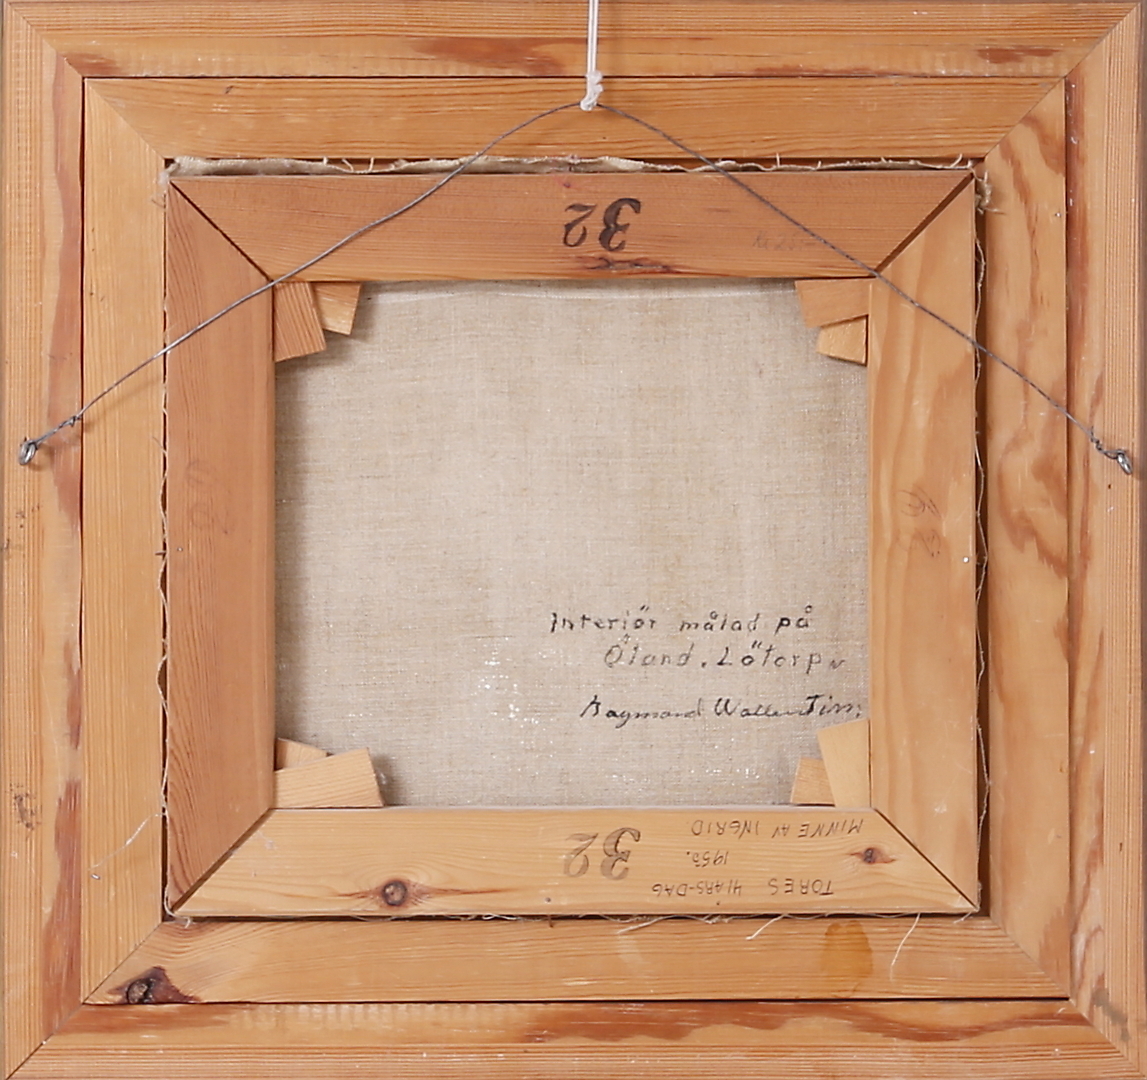 32
Interiör målad på
Öland. Lötorp
Raymond Wallentin
32
TORES 41ÅRS-DAG
MINNE AV INGRID